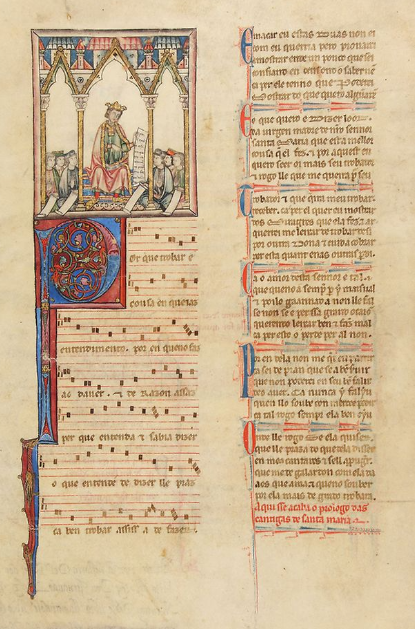 or que trobar e
cousa en que ias
entendimento. por en queno faz
ao dauer. & de Razon assaz
per que entenda & sabia dizer
o que entende de dizer lle praz
ca ben trobar assis s a de fazer
E macar eu estas duas non ei
com eu querria pero prouarei
a mostrar ende un pouco que sei
confiand en deus ond o saber uen
ca per ele tenno que poderei
mostrar do que quero algũa ren
E o que quero e dizer loor
da uirgen madre de nro sennor
santa Maria que est a mellor
cousa que el fez. & por aquest eu
quero seer oi mais seu trobador
& rogo lle que me queira por seu
Trobador & que queira meu trobar
receber. ca per el quer eu mostrar
dos miragres que ela fez. & ar
querrei me leixar de trobar des i
por outra dona & cuid a cobrar
per esta quant enas outras perdi.
Ca o amor desta sennor e tal.
que queno a sempre per i mais ual
& poi lo gaannad a non lle fal
se non se e per sa grand ocajon
querendo leixar ben & fazer mal
ca per esto o perde per al non.
Por en dela non me quer eu partir
ca sei de pran que se a ben seruir
que non poderei en seu ben falir
de o auer. ca nunca y faliu
quen llo soube con merçee pedir
ca tal rogo sempr ela ben oyu
Onde lle rogo se ela quiser.
que lle praza do que dela disser
en meus cantares & se ll aprouguer
que me de galardon com ela da
aos que ama & queno souber
por ela mais de grado trobara.
aqui sse acaba o prologo das
cantigas de santa maria